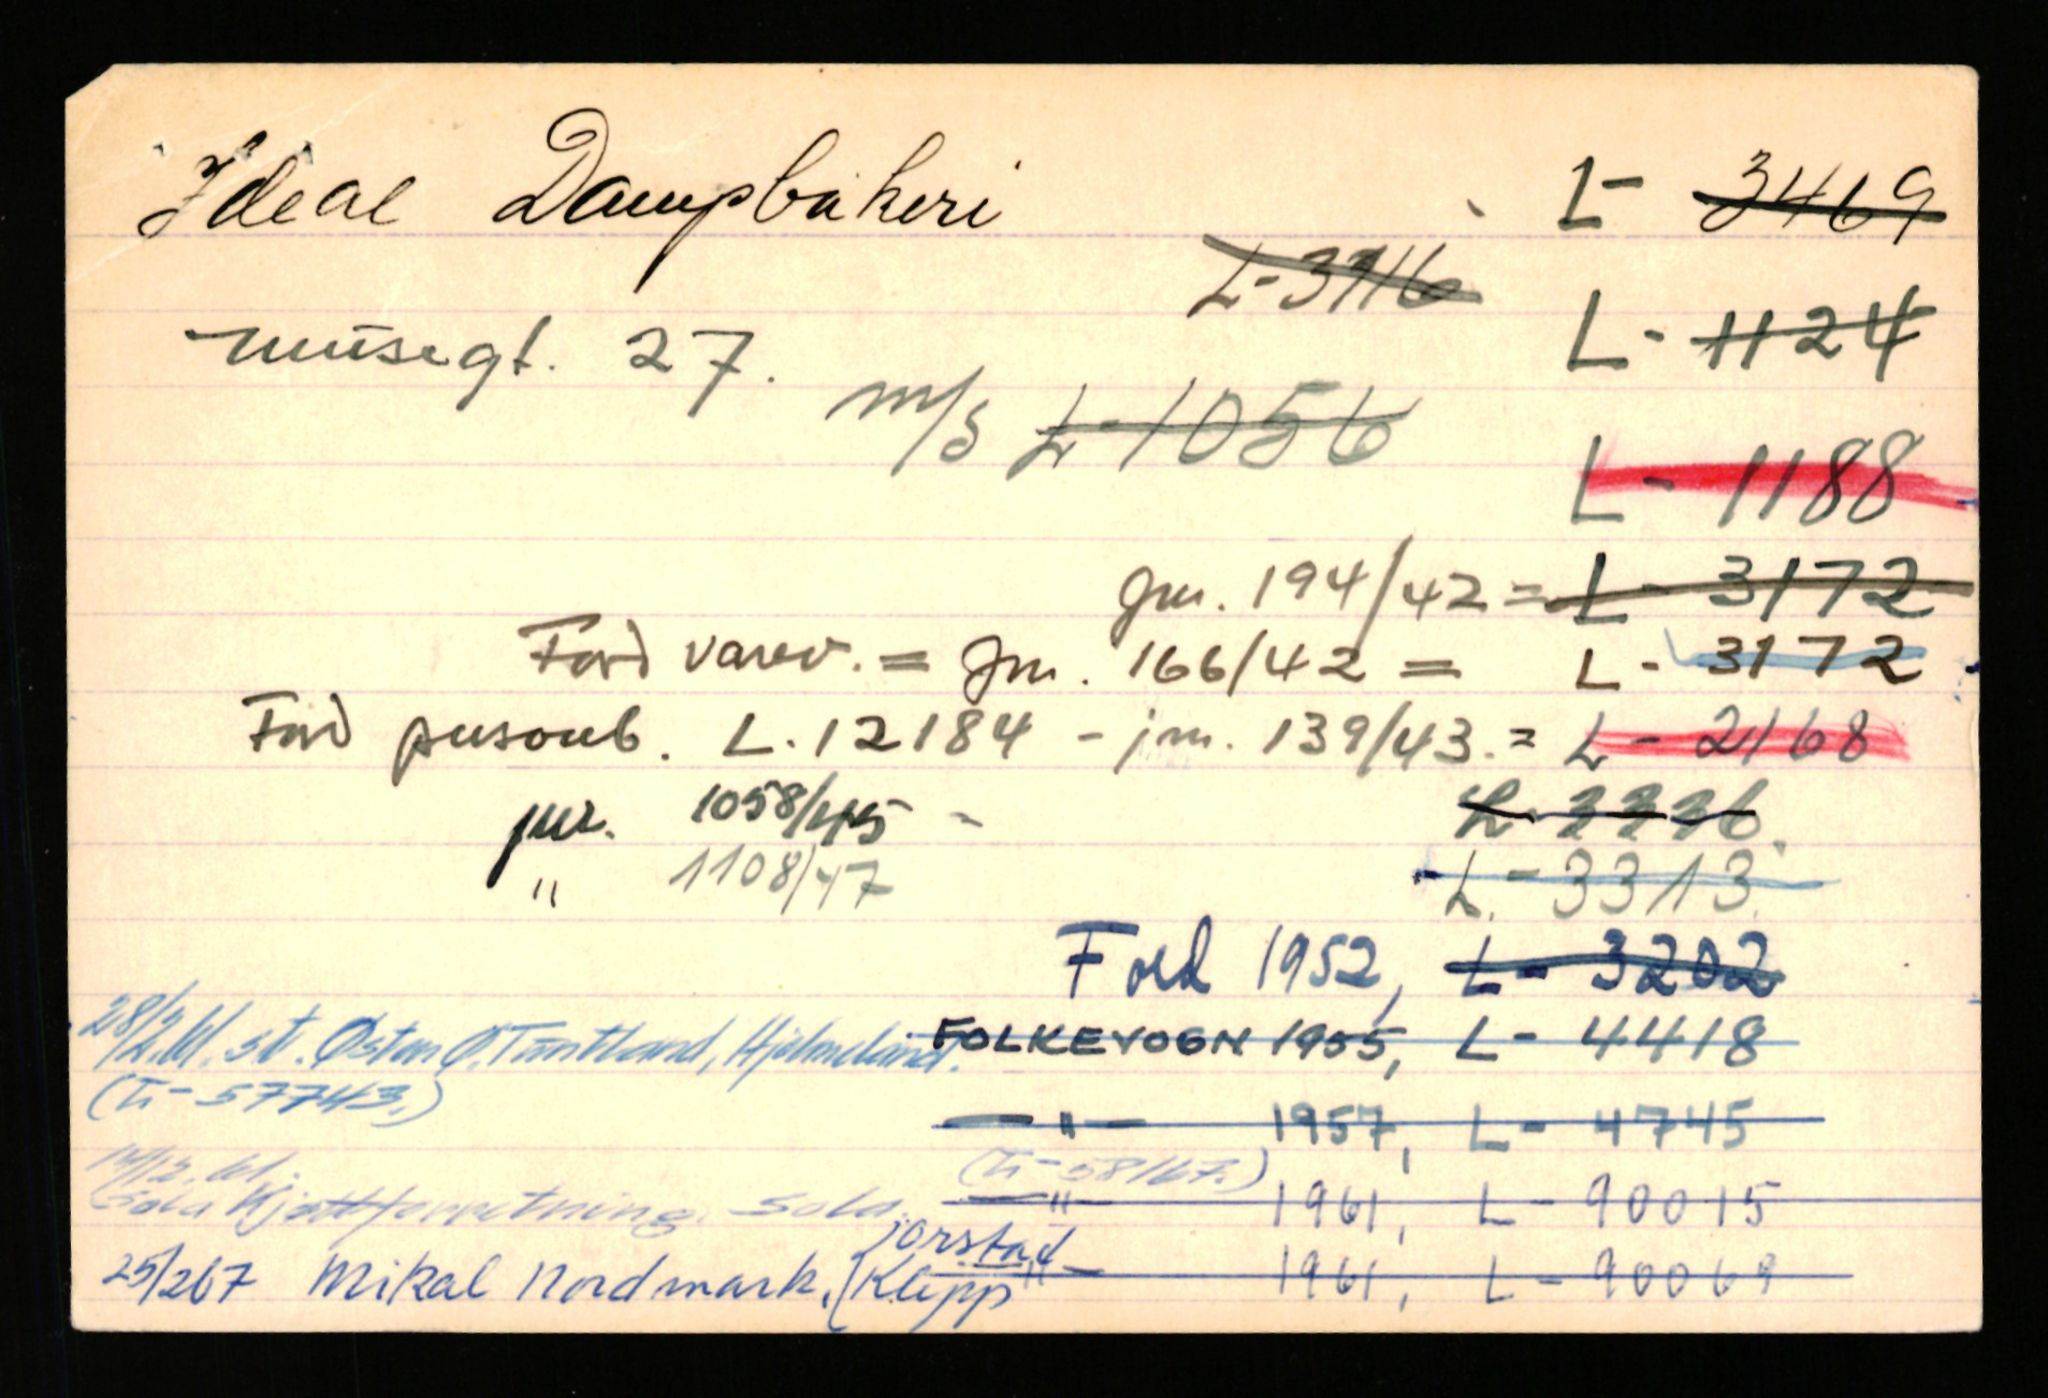 Ideal Dampbakeri L- 3469
L-3716
Musegt. 27. L- 1124
m/s L-1056
L- 1188
Jnr. 194/42 = L- 3172
Ford varev. = Jnr. 166/42 = L- 3172
Ford personb. L. 12184 - jnr. 139/43. = L- 2168
jnr. 1058/45 -
" 1108/47 L.- 3313.
Ford 1952, L- 3202
28/2.61. st. Østen Ø. Tøntland, Hjelmeland. FOLKEVOGN 1955, L- 4418
(L-57743.)
— " — 1957, L- 4745
14/12.61. (L-58167.)
Sola Kjøttforretning. Sola. — " — 1961, L- 90015
25/267 Mikal Nordmark, (Jorstad Klepp — " — 1961, L- 90069